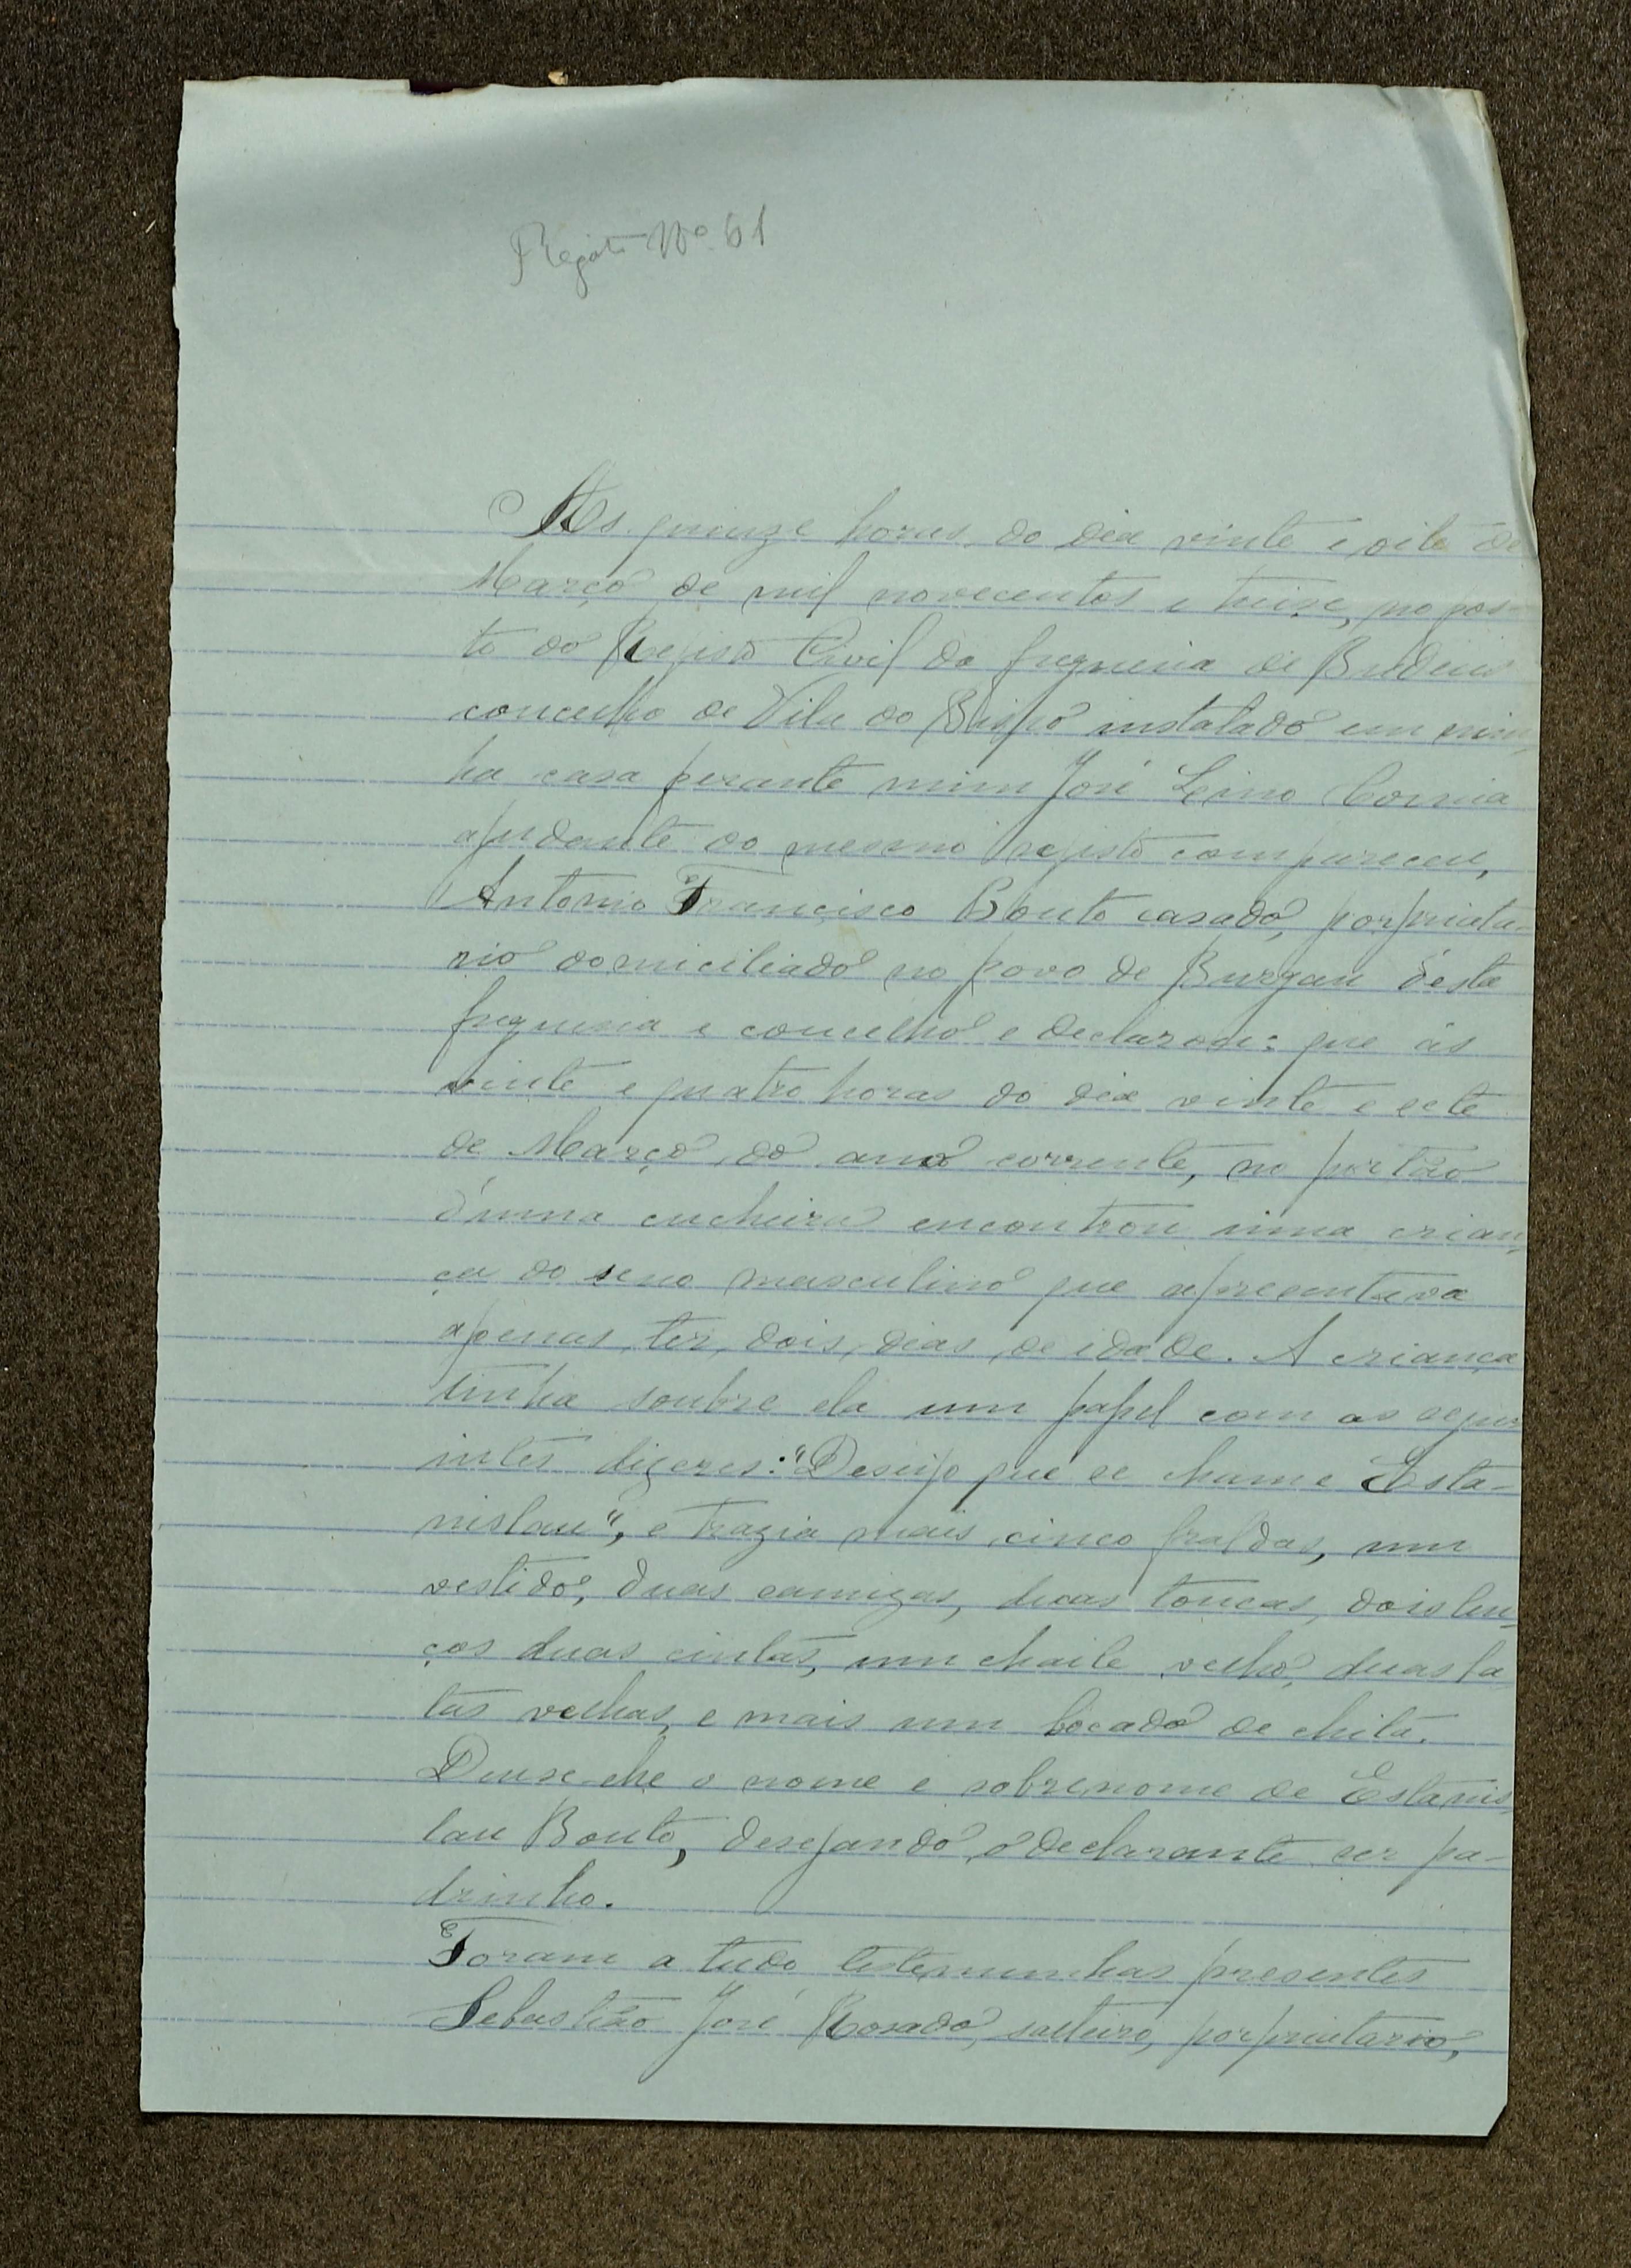 Registo Nº 61
As quinze horas do dia vinte e oito de
Março de mil novecentos e treze, no pos-
to do Registo Civil da freguesia de Budens
concelho de Vila do Bispo instalado em min-
ha casa perante mim José Lino Correia
ajudante do mesmo registo compareceu,
Antonio Francisco Bouto casado, porprieta-
rio domiciliado no povo de Burgau désta
freguesia e concelho e declarou: que ás
vinte e quatro horas do dia vinte e sete
de Março do ano corrente, no portão
d'uma cucheira encontrou uma crian-
ça do sexo masculino que apresentava
apenas ter dois dias de idade. A criança
tinha soubre ela um papel com as segu-
intes dizeres: "Deseijo que se chame Esta-
nislau", e trazia mais cinco fraldas, um
vestido, duas camizas, duas toucas, dois len-
ços duas cintas, um chaile velho, duas fa-
tas velhas, e mais um bocado de chita.
Deu-se-lhe o nome e sobrenome de Estanis-
lau Bouto, desejando o declarante ser pa-
drinho.
Foram a tudo testemunhas presentes
Sebastião José Rosado, solteiro, porprietario,